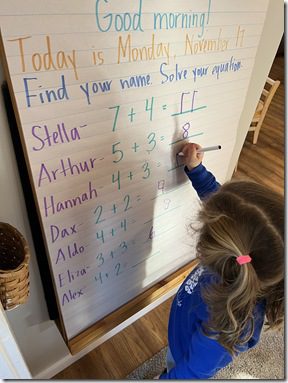 Good morning!
Today is Monday, November 17
Find your name. Solve your equation.
Stella- 7 + 4 = 11
Arthur- 5 + 3 = 8
Hannah- 4 + 3 =
Dax- 2 + 2 = 4
Aldo- 4 + 4 =
Eliza- 3 + 3 = 6
Alex- 4 + 2 =